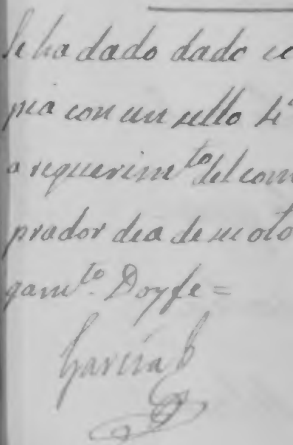 Se ha dado dado co
pia con un sello 4º
a requerimto del com
prador dia de su oto
gamto. Doyfe =
García